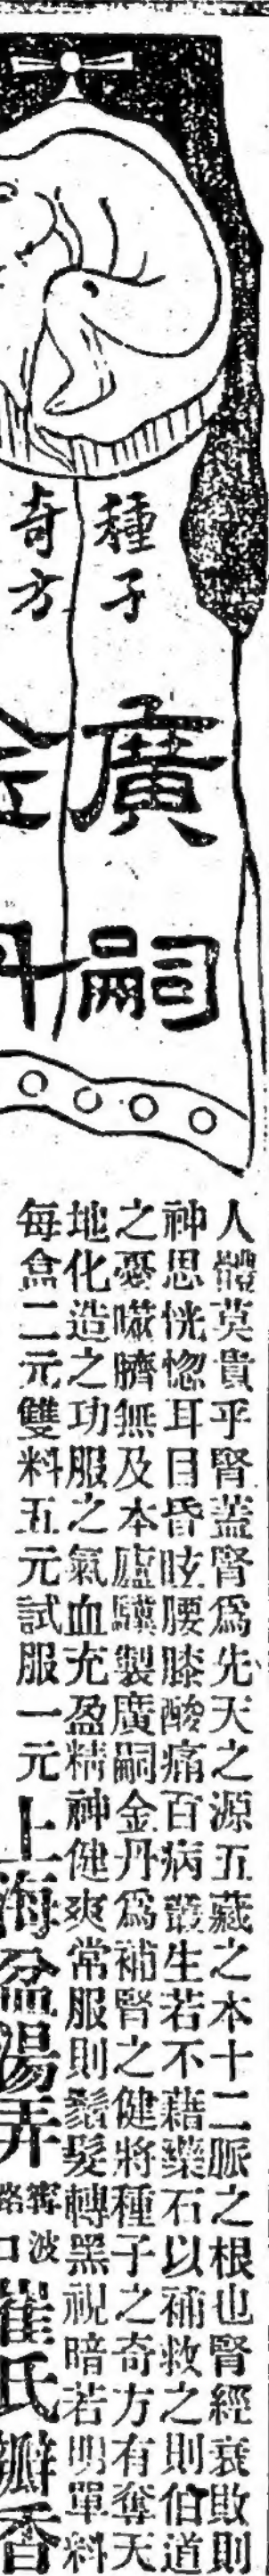 種子
奇方
廣嗣
金丹
人體莫貴乎腎蓋腎爲先天之源五藏之本十二脈之根也腎經衰敗則
神思恍惚耳目昏眩腰膝酸痛百病叢生若不藉藥石以補救之則伯道
之憂噬臍無及本廬驥製廣嗣金丹爲補腎之健將種子之奇方有奪天
地化造之功服之氣血充盈精神健爽常服則鬚髮轉黑視暗若明單料
每盒二元雙料五元試服一元
上海盆湯弄
寗波路口
崔氏瓣香